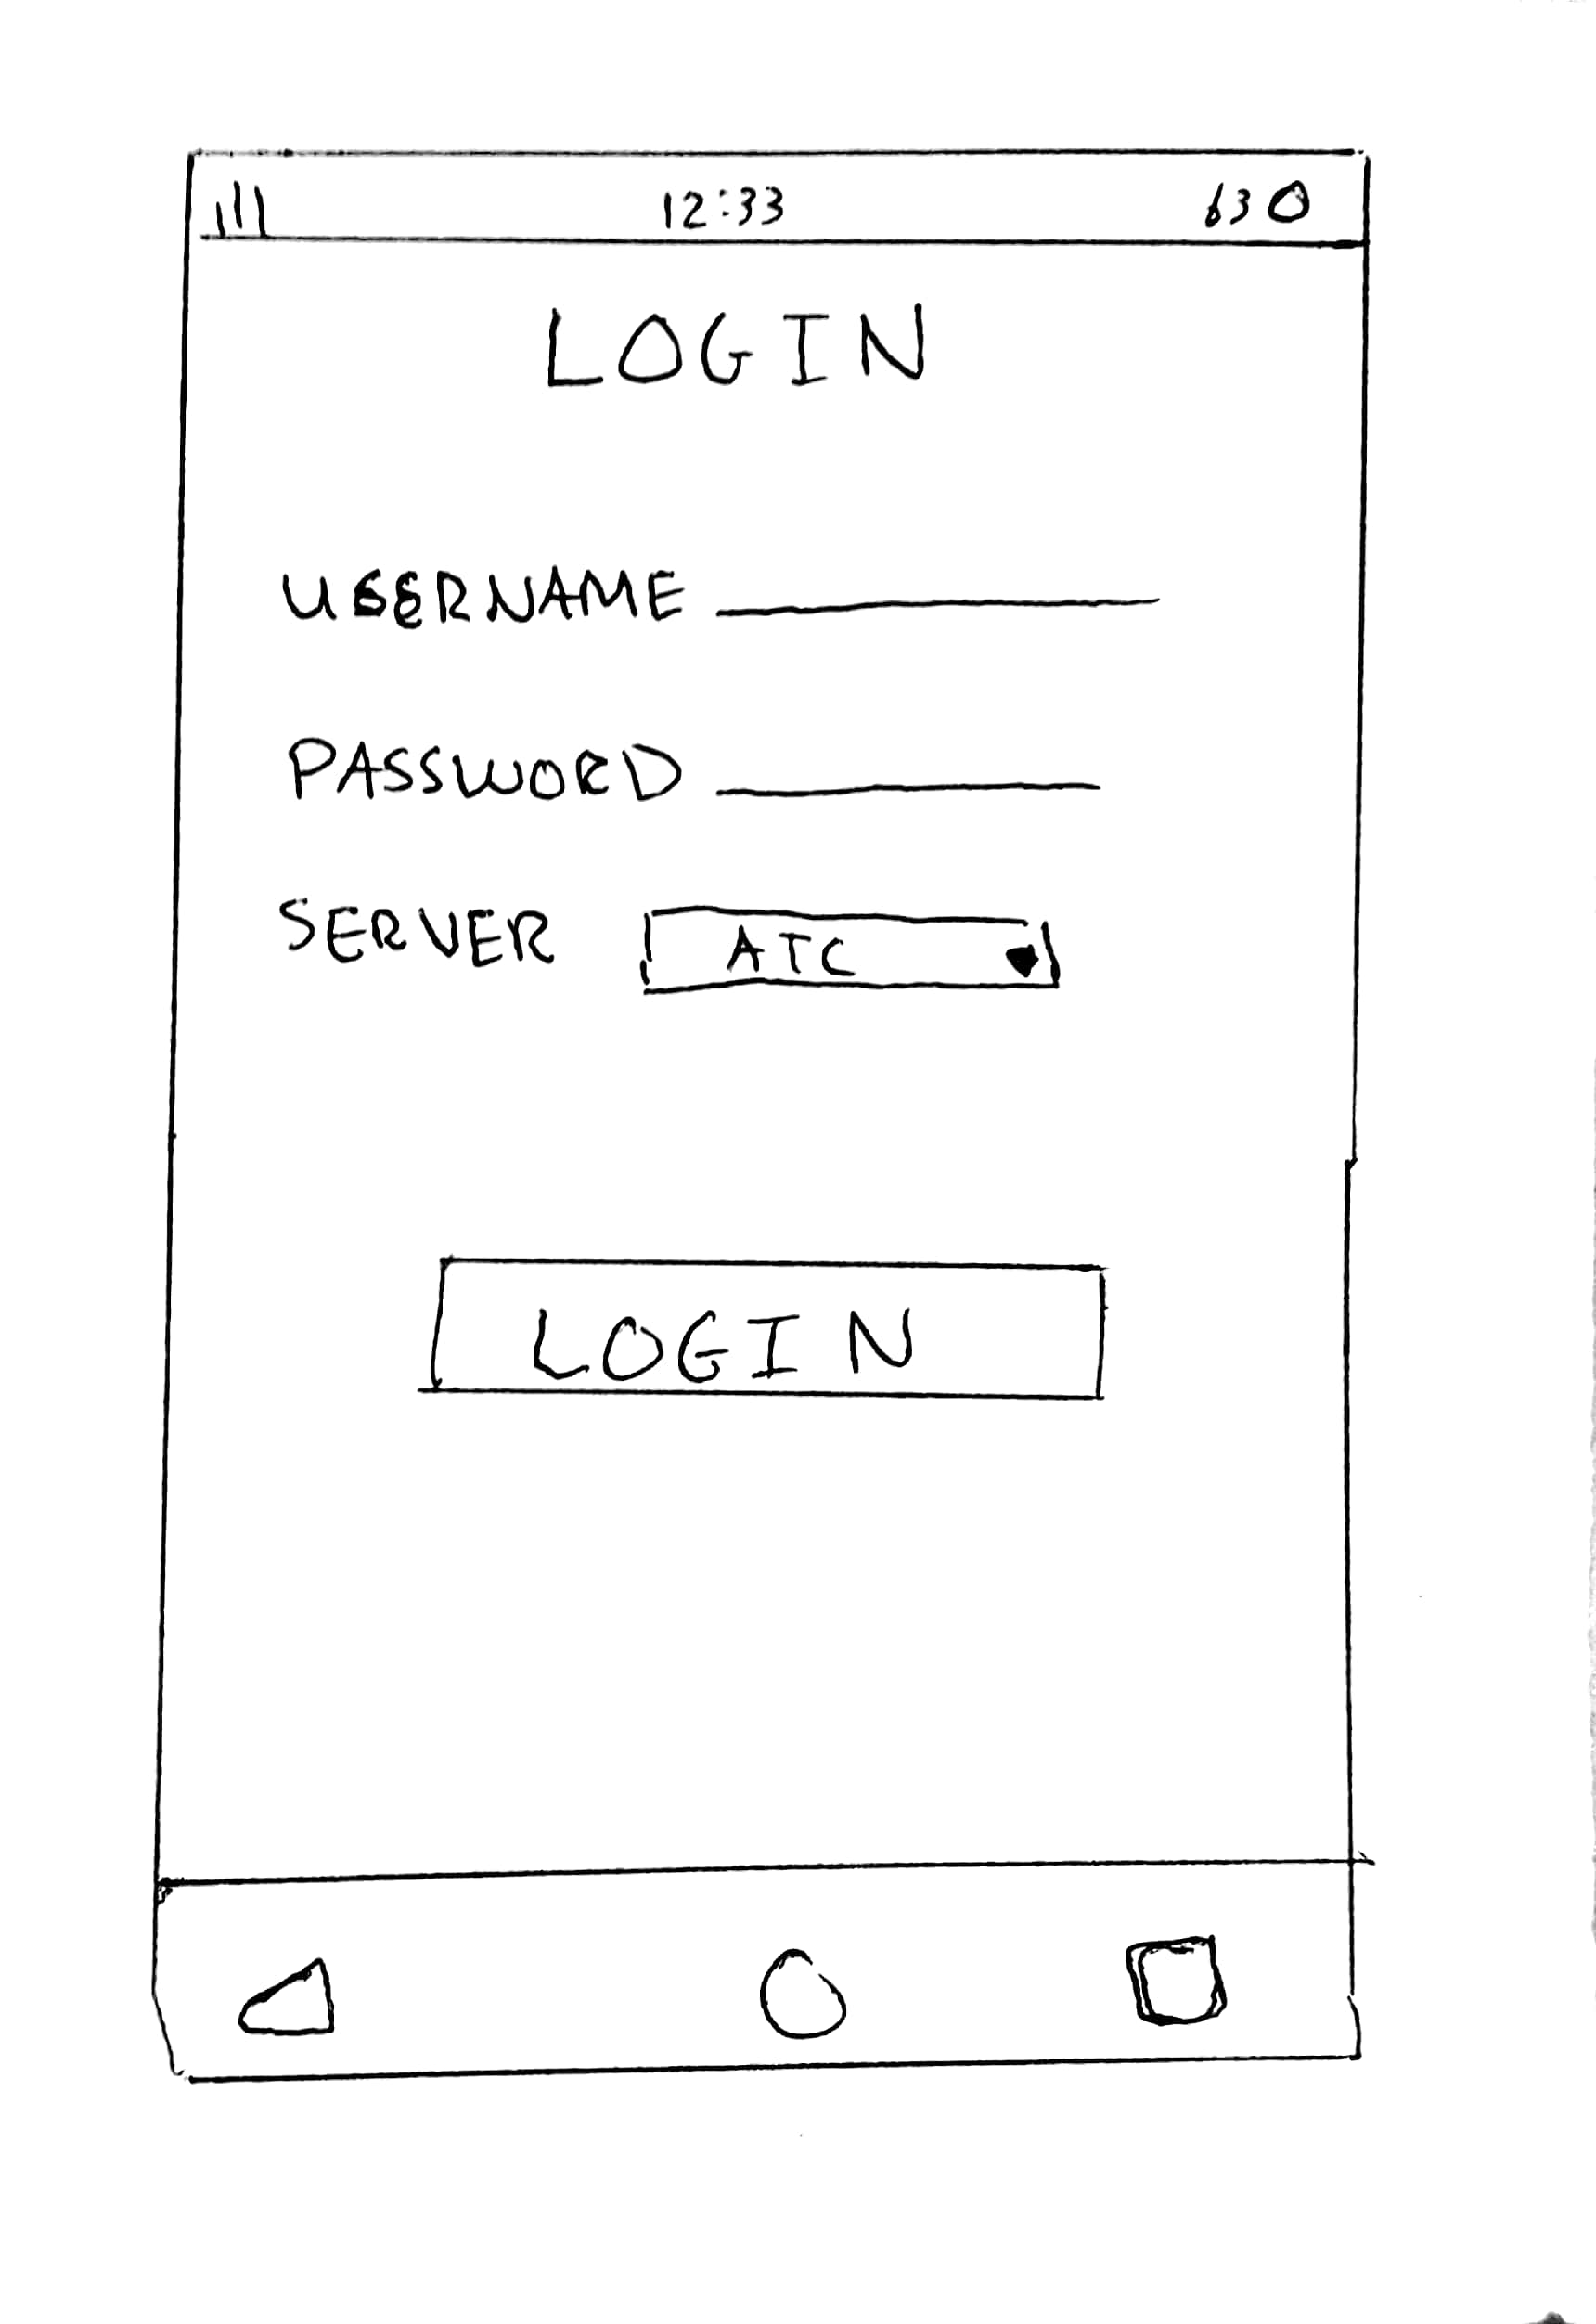 12:33 63
LOGIN
USERNAME
PASSWORD
SERVER ATC
LOGIN